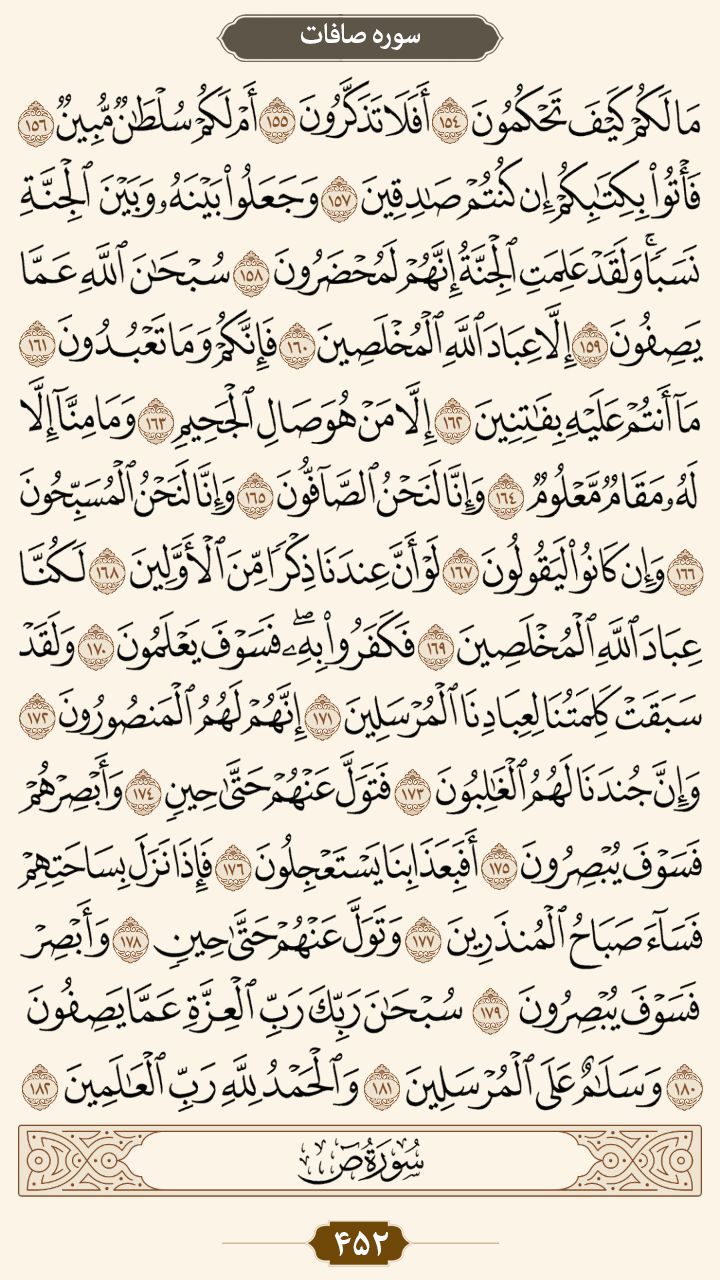 سوره صافات
مَا لَكُمْ كَيْفَ تَحْكُمُونَ ١٥٤ أَفَلَا تَذَكَّرُونَ ١٥٥ أَمْ لَكُمْ سُلْطَٰنٌ مُّبِينٌ ١٥٦
فَأْتُوا۟ بِكِتَٰبِكُمْ إِن كُنتُمْ صَٰدِقِينَ ١٥٧ وَجَعَلُوا۟ بَيْنَهُۥ وَبَيْنَ ٱلْجِنَّةِ
نَسَبًا ۚ وَلَقَدْ عَلِمَتِ ٱلْجِنَّةُ إِنَّهُمْ لَمُحْضَرُونَ ١٥٨ سُبْحَٰنَ ٱللَّهِ عَمَّا
يَصِفُونَ ١٥٩ إِلَّا عِبَادَ ٱللَّهِ ٱلْمُخْلَصِينَ ١٦٠ فَإِنَّكُمْ وَمَا تَعْبُدُونَ ١٦١
مَآ أَنتُمْ عَلَيْهِ بِفَٰتِنِينَ ١٦٢ إِلَّا مَنْ هُوَ صَالِ ٱلْجَحِيمِ ١٦٣ وَمَا مِنَّآ إِلَّا
لَهُۥ مَقَامٌ مَّعْلُومٌ ١٦٤ وَإِنَّا لَنَحْنُ ٱلصَّآفُّونَ ١٦٥ وَإِنَّا لَنَحْنُ ٱلْمُسَبِّحُونَ
١٦٦ وَإِن كَانُوا۟ لَيَقُولُونَ ١٦٧ لَوْ أَنَّ عِندَنَا ذِكْرًا مِّنَ ٱلْأَوَّلِينَ ١٦٨ لَكُنَّا
عِبَادَ ٱللَّهِ ٱلْمُخْلَصِينَ ١٦٩ فَكَفَرُوا۟ بِهِۦ ۖ فَسَوْفَ يَعْلَمُونَ ١٧٠ وَلَقَدْ
سَبَقَتْ كَلِمَتُنَا لِعِبَادِنَا ٱلْمُرْسَلِينَ ١٧١ إِنَّهُمْ لَهُمُ ٱلْمَنصُورُونَ ١٧٢
وَإِنَّ جُندَنَا لَهُمُ ٱلْغَٰلِبُونَ ١٧٣ فَتَوَلَّ عَنْهُمْ حَتَّىٰ حِينٍ ١٧٤ وَأَبْصِرْهُمْ
فَسَوْفَ يُبْصِرُونَ ١٧٥ أَفَبِعَذَابِنَا يَسْتَعْجِلُونَ ١٧٦ فَإِذَا نَزَلَ بِسَاحَتِهِمْ
فَسَآءَ صَبَاحُ ٱلْمُنذَرِينَ ١٧٧ وَتَوَلَّ عَنْهُمْ حَتَّىٰ حِينٍ ١٧٨ وَأَبْصِرْ
فَسَوْفَ يُبْصِرُونَ ١٧٩ سُبْحَٰنَ رَبِّكَ رَبِّ ٱلْعِزَّةِ عَمَّا يَصِفُونَ
١٨٠ وَسَلَٰمٌ عَلَى ٱلْمُرْسَلِينَ ١٨١ وَٱلْحَمْدُ لِلَّهِ رَبِّ ٱلْعَٰلَمِينَ ١٨٢
سُورَةُ صٓ
۴۵۲